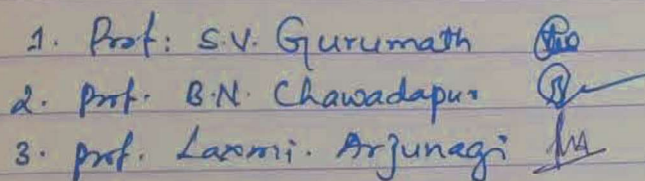 1. Prof: S.V. Gurumath
2. Prof. B.N. Chawadapur
3. Prof. Laxmi. Arjunagi